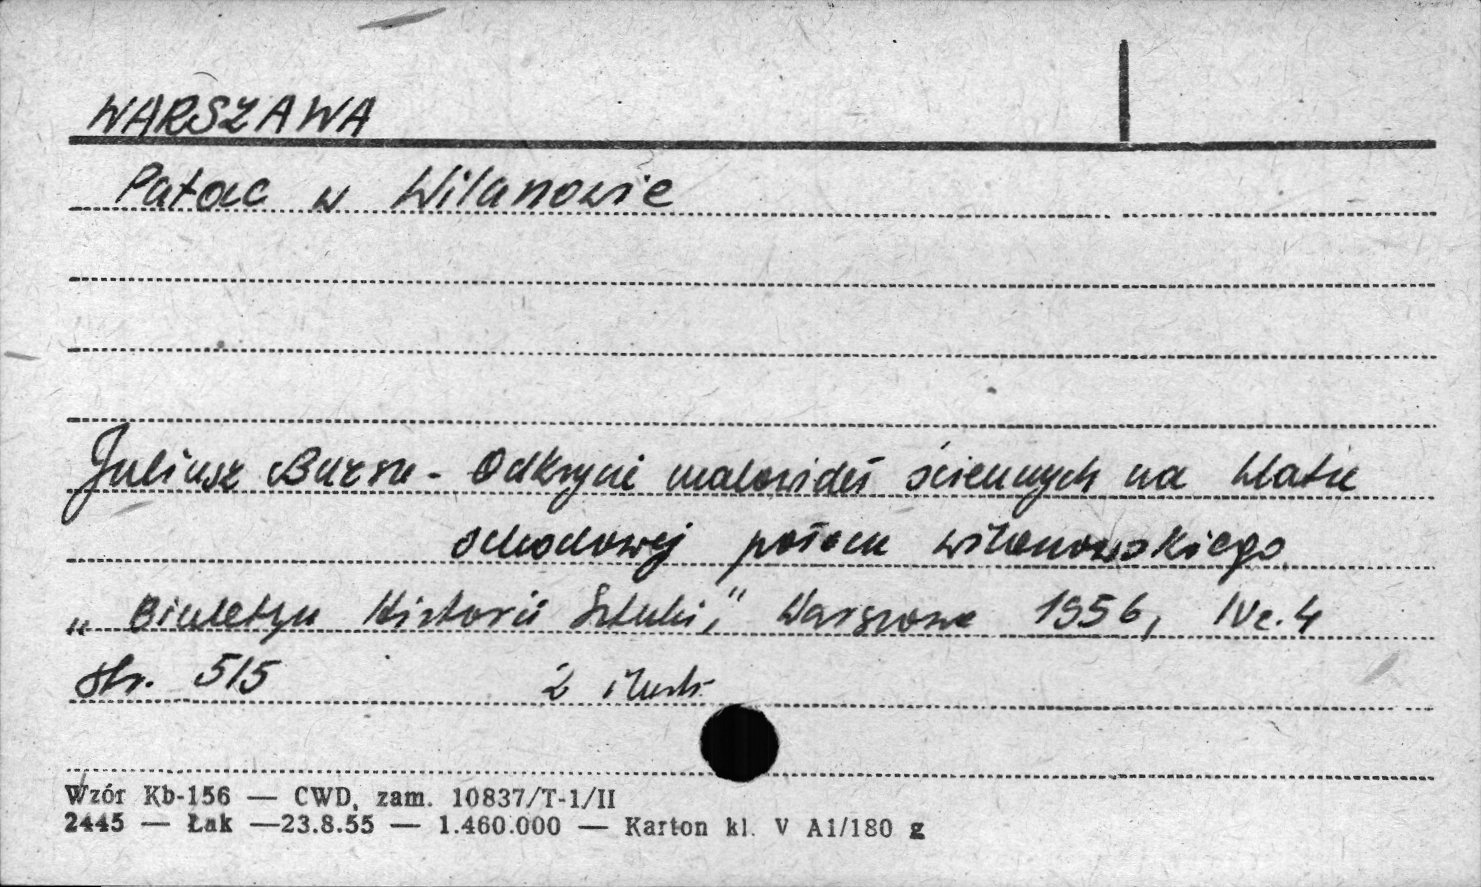 WARSZAWA
Pałac w Wilanowie
Juliusz Bursze - Odkrycie malowideł ściennych na klatce
schodowej pałacu wilanowskiego
„Biuletyn Historii Sztuki," Warszawa 1956, Nr. 4
str. 515 2 ilustr.
Wzór Kb-156 — CWD, zam. 10837/T-1/II
2445 — Łak —23.8.55 — 1.460.000 — Karton kl. V A1/180 g